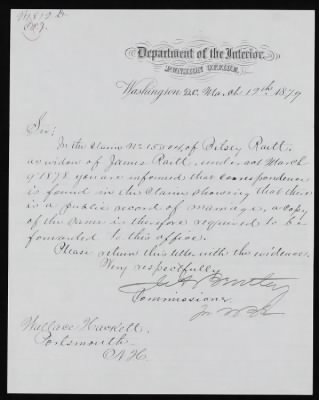 Department of the Interior,
PENSION OFFICE,
Washington D.C. March 19th 1879
Sir;
In the claim No. of Betsey
as widow of James under act March
9 1878 you are informed that correspondence
is found in the claim showing that there
is a public record of marriage, a copy
of the same is therefore required to be
forwarded to this office.
Please return this letter with the evidence.
Very respectfully
Commissioner
Wallace Hackett,
Portsmouth
N.H.